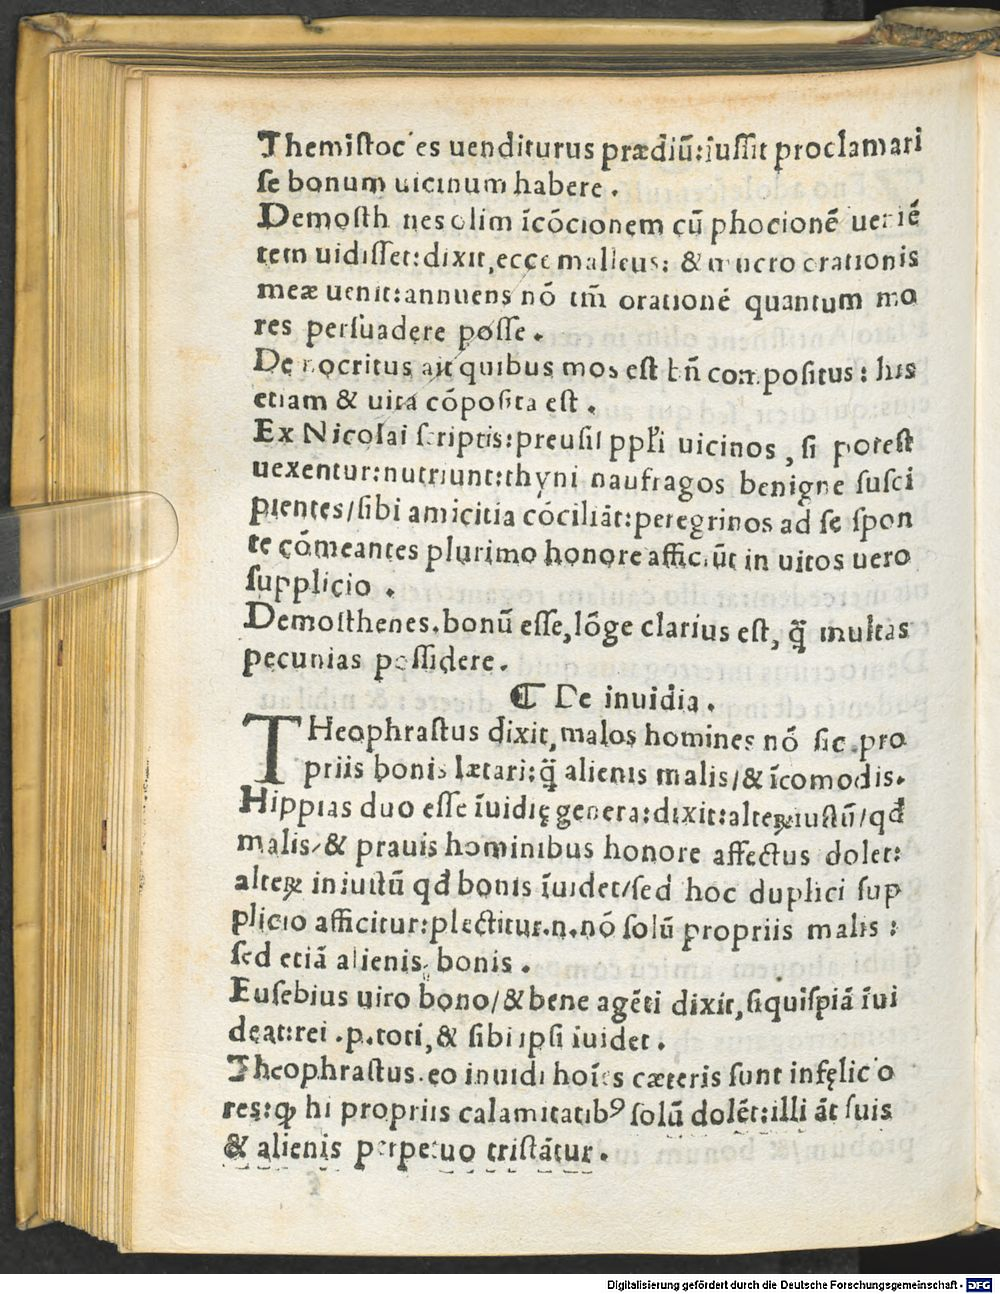 Themistoc es uenditurus prædiũ:iussit proclamari
se bonum uicinum habere.
Demosth nes olim ĩcõcionem cũ phocionẽ ueniẽ
tem uidisset:dixit,ecce malleus: & mucro orationis
meæ uenit:annuens nõ tm̃ orationé quantum mo
res persuadere posse.
De ocritus ait quibus mos est bñ compositus: his
etiam & uita cõposita est.
Ex Nicolai scriptis: uicinos, si potest
uexentur:nutriunt:thyni naufragos benigne susci
pientes/sibi amicitia cóciliãt:peregrinos ad se spon
te cómeantes plurimo honore afficiũt in uitos uero
supplicio.
Demosthenes.bonũ esse,lõge clarius est, q̃ multas
pecunias possidere.
¶ De inuidia.
THeophrastus dixit,malos homines nõ sic pro
priis bonis lætari:q̃ alienis malis/& ĩcomodis.
Hippias duo esse ĩuidię genera:dixit:alteꝝ iustũ/qđ
malis/& prauis hominibus honore affectus dolet:
alteꝝ iniustũ qđ bonis ĩuidet/sed hoc duplici sup
plicio afficitur:plectitur.n.nõ solũ propriis malis:
sed etiã alienis bonis.
Eusebius uiro bono/& bene agẽti dixit,siquispiã ĩui
deat:rei .p.toti,& sibi ipsi iuidet.
Theophrastus.eo inuidi hoĩes cæteris sunt infęlicio
res:ꝙ hi propriis calamitatibꝰ solũ dolẽt:illi ãt suis
& alienis perpetuo tristãtur.
Digitalisierung gefördert durch die Deutsche Forschungsgemeinschaft - DFG